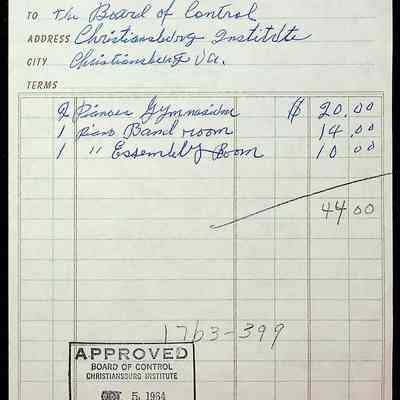 TO The Board of Control
ADDRESS Christiansburg Institute
CITY Christiansburg Va.
TERMS
2 Pianos Gymnasium $ 20.00
1 piano Band room 14.00
1 " Essembly Room 10 00
44 00
1763-399
APPROVED
BOARD OF CONTROL
CHRISTIANSBURG INSTITUTE
5, 1964